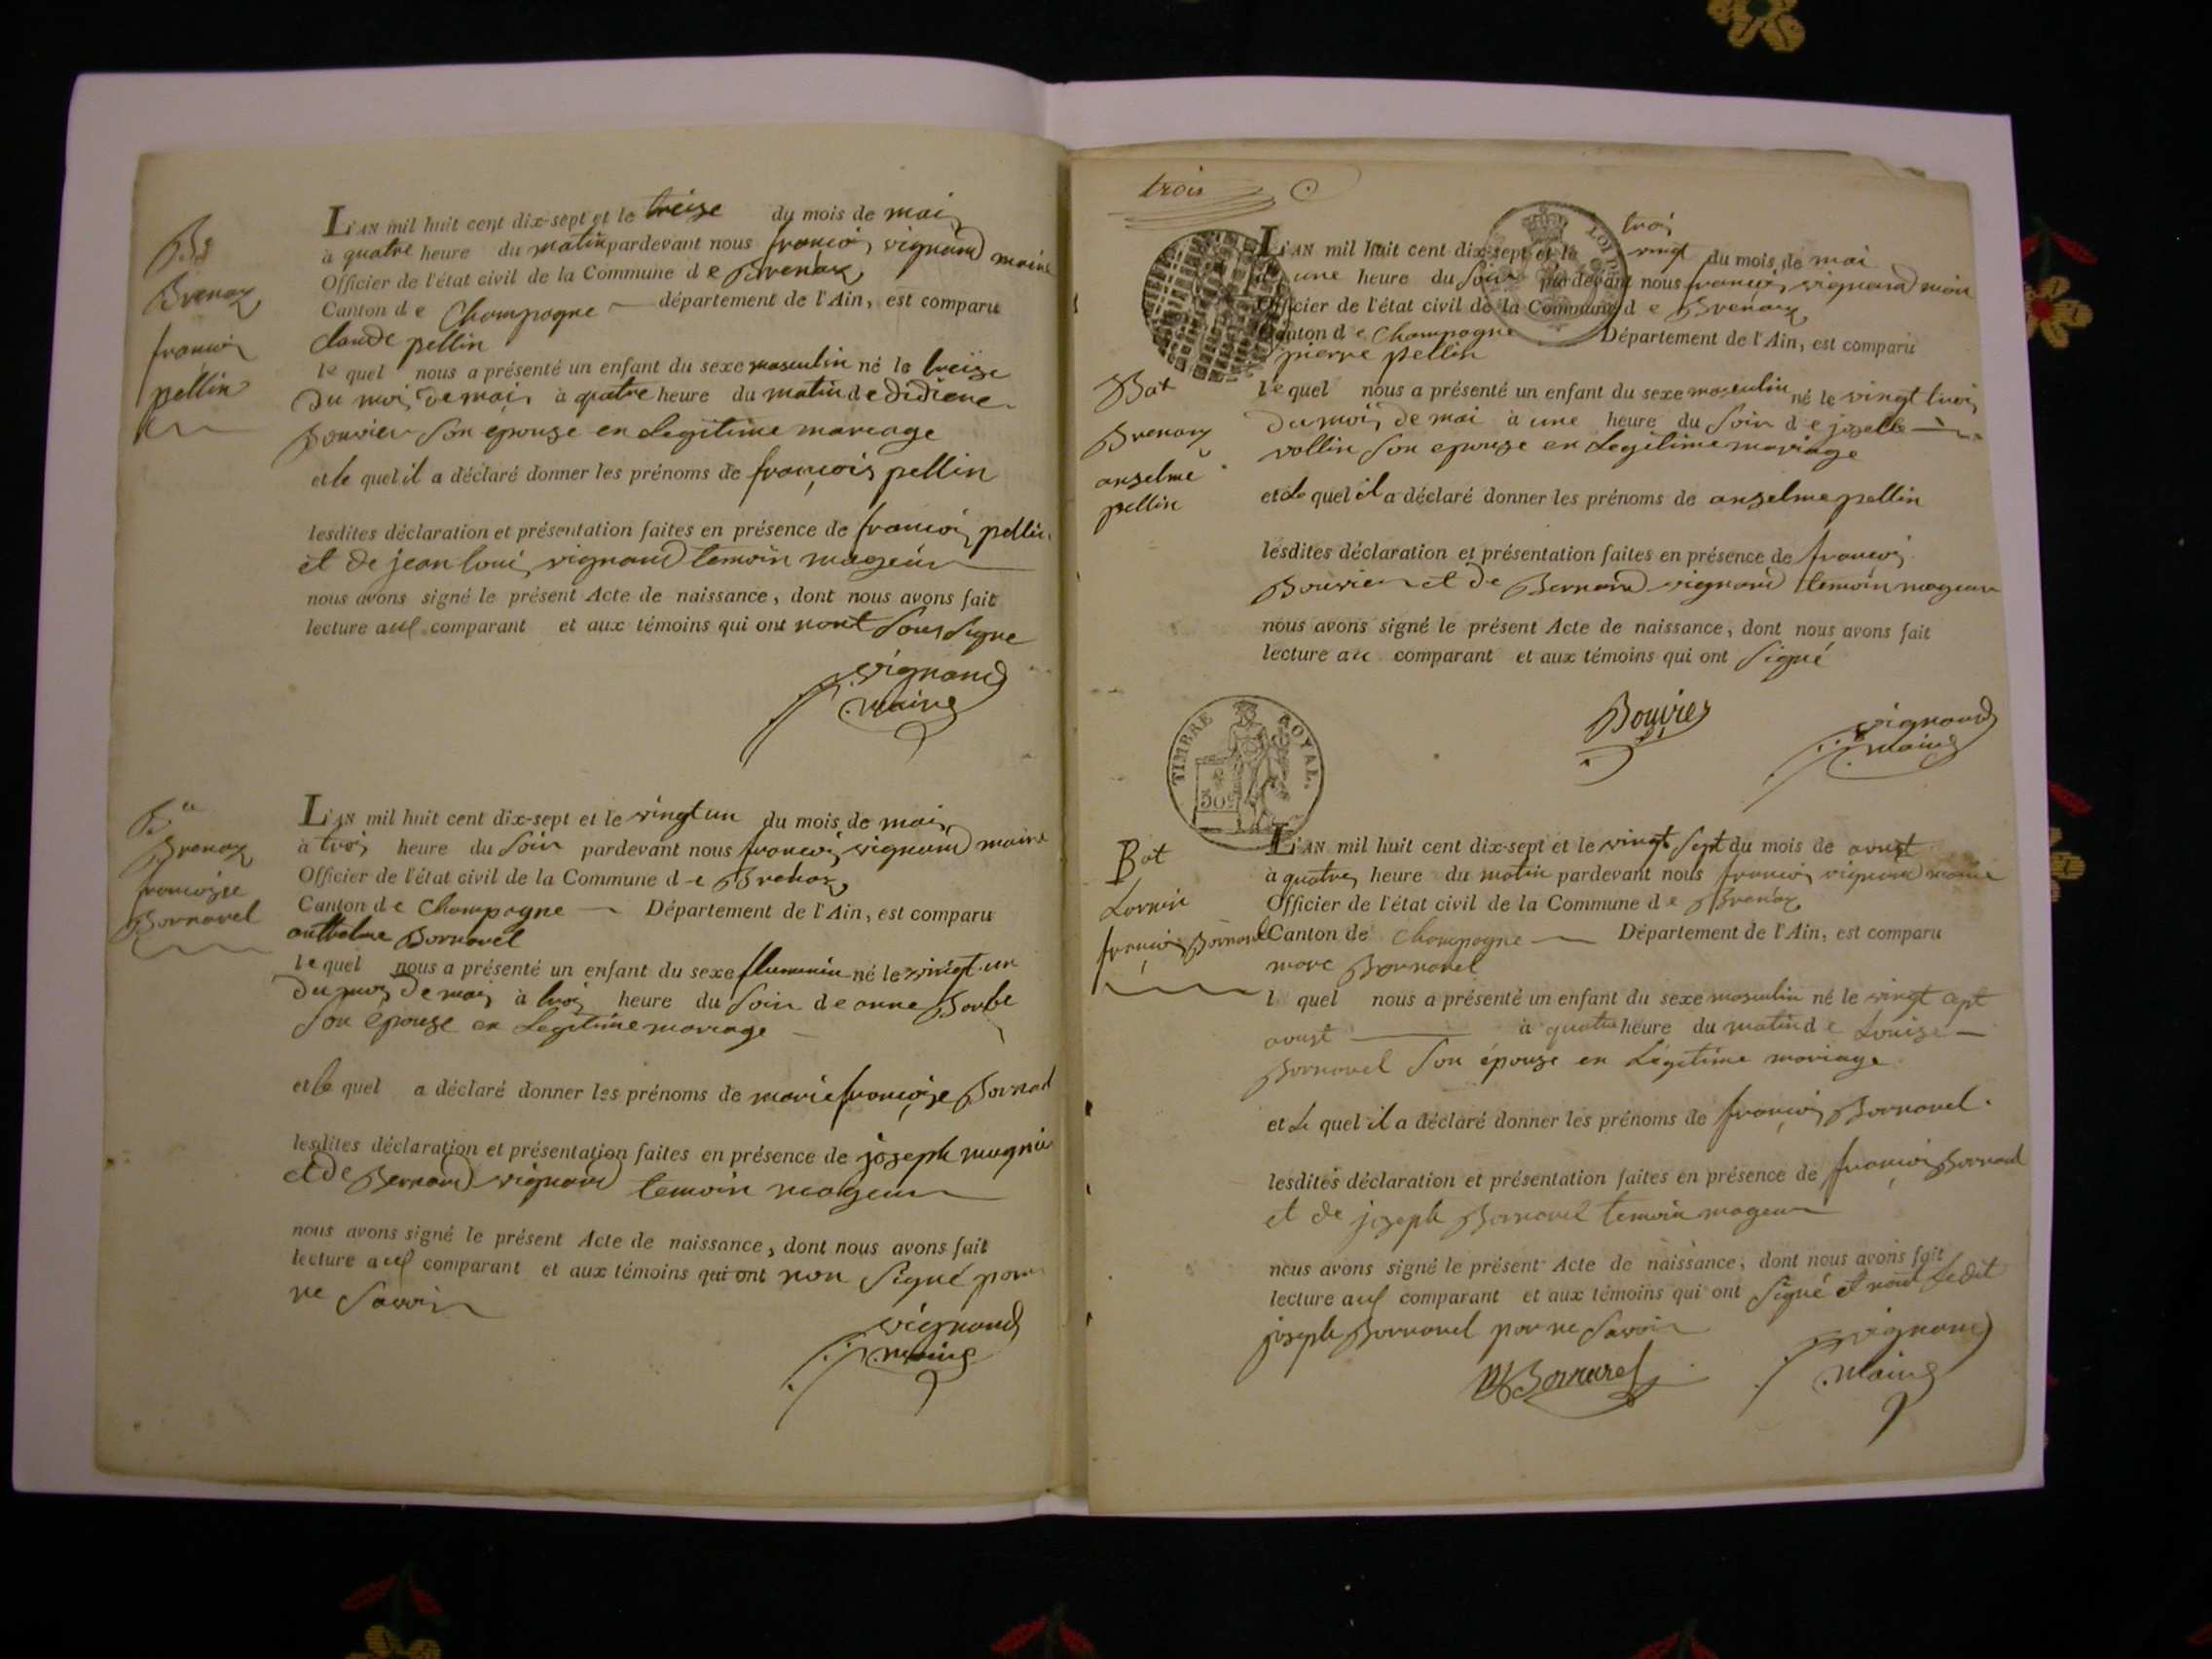 Brenaz
françois
pellin
L'AN mil huit cent dix-sept et le treize du mois de mai
à quatre heure du matin pardevant nous françois vignand maire
Officier de l'état civil de la Commune de Brenaz
Canton de Champagne département de l'Ain, est comparu
claude pellin
lequel nous a présenté un enfant du sexe masculin né le treize
du mois de mai à quatre heure du matin de didiere
Bouvier son epouse en Legitime mariage
et le quel il a déclaré donner les prénoms de françois pellin
lesdites déclaration et présentation faites en présence de françois pellin
et de jean loui vignand temoin mageur
nous avons signé le présent Acte de naissance, dont nous avons fait
lecture aux comparant et aux témoins qui ont nont Sousigne
vignand
maire
Brenaz
françoise
Bornarel
L'AN mil huit cent dix-sept et le vingt un du mois de mai
à trois heure du soir pardevant nous françois vignand maire
Officier de l'état civil de la Commune de Brenaz
Canton de Champagne Département de l'Ain, est comparu
Bornarel
lequel nous a présenté un enfant du sexe né le vingt un
du mois de mai à trois heure du soir de anne
son epouse en Legitime mariage
et le quel a déclaré donner les prénoms de marie françoise
lesdites déclaration et présentation faites en présence de joseph
et de Bernard vignand temoin mageur
nous avons signé le présent Acte de naissance, dont nous avons fait
lecture aux comparant et aux témoins qui ont non signé pour
ne savoir
vignand
maire
trois
Bat
Brenaz
anselme
pellin
trois
L'AN mil huit cent dix-sept et le vingt du mois de mai
une heure du soir pardevant nous françois vignand maire
Officier de l'état civil de la Commune de Brenaz
Canton de Champagne Département de l'Ain, est comparu
pierre pellin
lequel nous a présenté un enfant du sexe masculin né le vingt trois
du mois de mai à une heure du soir de
vollin son epouse en Legitime mariage
et Le quel il a déclaré donner les prénoms de anselme pellin
lesdites déclaration et présentation faites en présence de françois
Bouvier et de Bernard vignand temoin mageur
nous avons signé le présent Acte de naissance, dont nous avons fait
lecture au comparant et aux témoins qui ont signé
Bouvier
vignand
maire
TIMBRE ROYAL.
Bat
françois Bornarel
L'AN mil huit cent dix-sept et le vingt sept du mois de aoust
à quatre heure du matin pardevant nous françois vignand maire
Officier de l'état civil de la Commune de Brenaz
Canton de Champagne Département de l'Ain, est comparu
marc Bornarel
l quel nous a présenté un enfant du sexe masculin né le vingt cept
aoust à quatre heure du matin de Louise
Bornarel son épouse en Légitime mariage
et Le quel il a déclaré donner les prénoms de françois Bornarel.
lesdites déclaration et présentation faites en présence de françois Bornarel
et de joseph Bornarel temoin mageur
nous avons signé le présent Acte de naissance, dont nous avons fait
lecture aux comparant et aux témoins qui ont signé et nont Ledit
joseph Bornarel pour ne savoir
Bornarel
vignand
maire